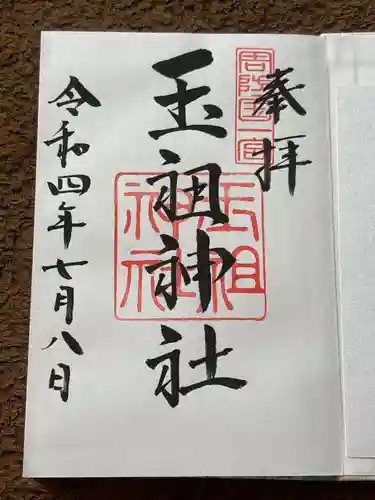 奉拝
周防国一宮
玉祖神社
玉祖神社
令和四年七月八日